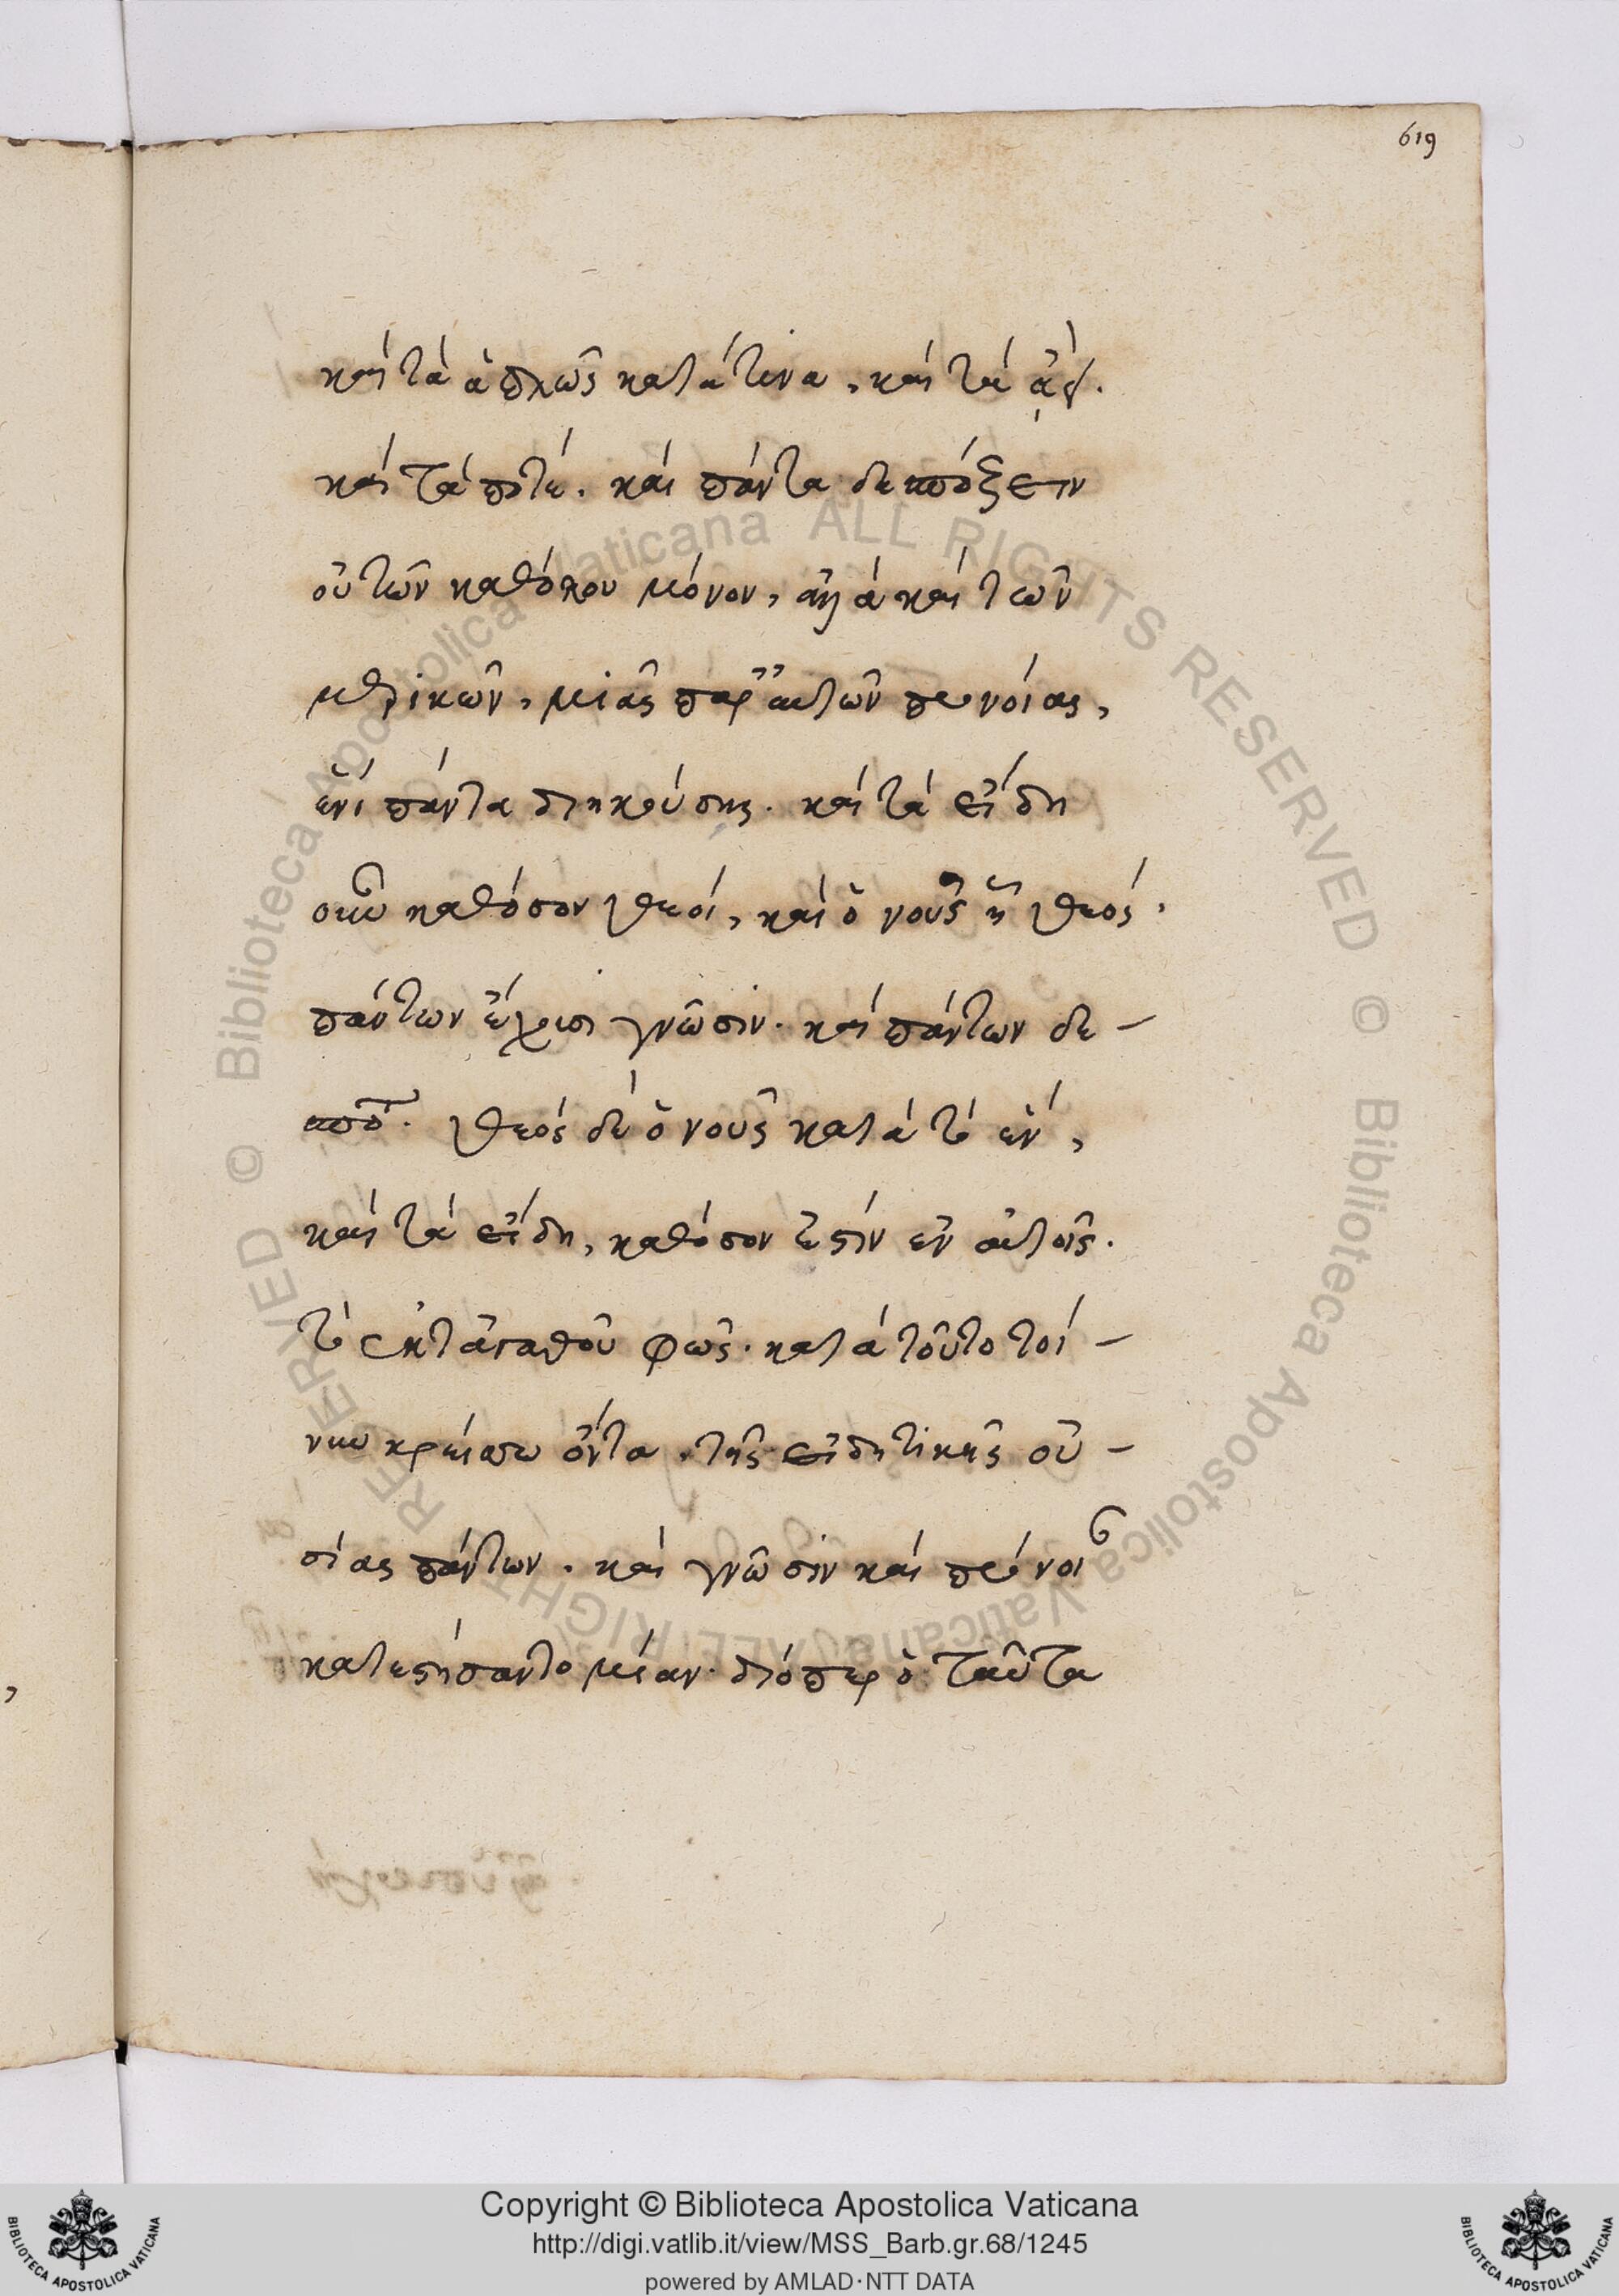 619
καὶ τὰ ἁπλῶς κατά τινα, καὶ τὰ ἀεὶ.
καὶ τὰ ποτέ. καὶ πάντα δεσπόξειν
οὐ τῶν καθόλου μόνον, ἀλλὰ καὶ τῶν
μερικῶν, μιᾶς παρ' αὐτῶν προνοίας,
ἐπὶ πάντα διηκούσης. καὶ τὰ εἴδη
οὖν καθόσον θεοί, καὶ ὁ νοῦς ᾗ θεός.
πάντων ἔχουσι γνῶσιν. καὶ πάντων δε-
σπο. θεὸς δὲ ὁ νοῦς κατὰ τὸ ἕν,
καὶ τὰ εἴδη, καθόσον ἐστὶν ἐν αὐτοῖς.
τὸ ἐκ τἀγαθοῦ φῶς. κατὰ τοῦτο τοί-
νυν κρείττω ὄντα, τῆς εἰδητικῆς οὐ-
σίας πάντων. καὶ γνῶσιν καὶ πρόνοι
κατεστήσαντο μίαν. διόπερ ὁ ταῦτα
Copyright © Biblioteca Apostolica Vaticana
http://digi.vatlib.it/view/MSS_Barb.gr.68/1245
powered by AMLAD·NTT DATA